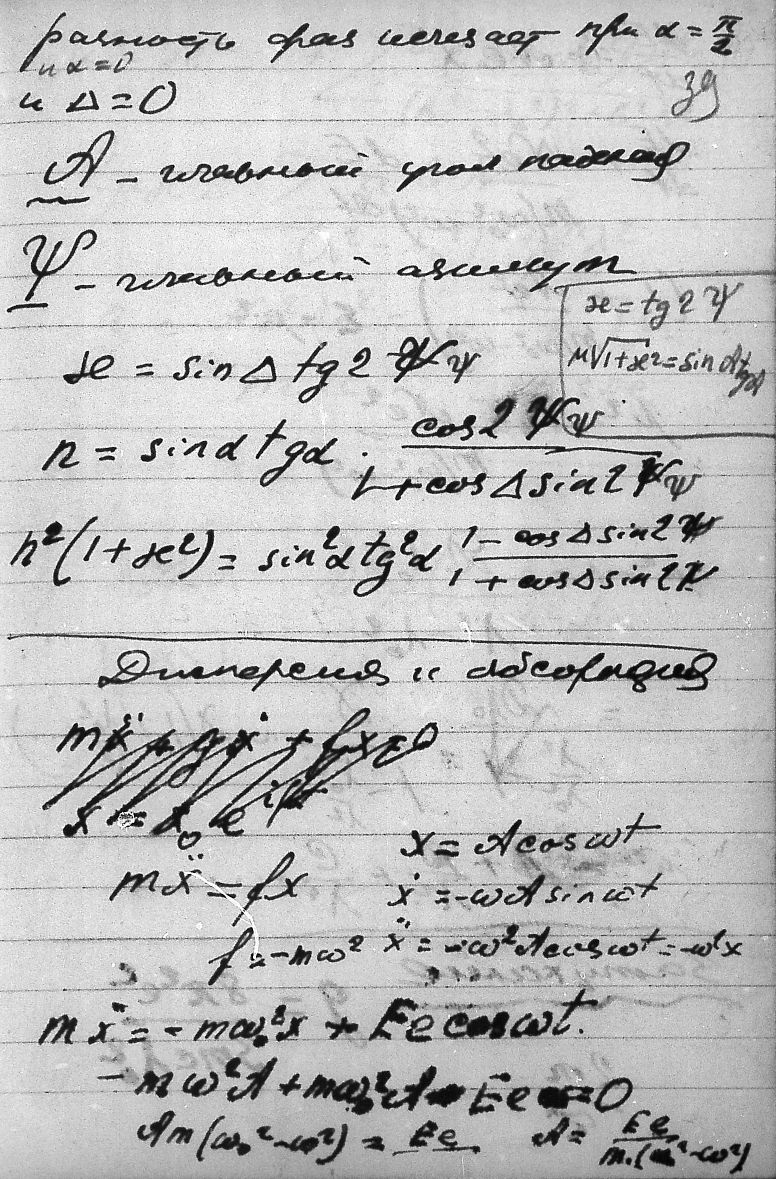 разность фаз исчезает при α = π/2
и α = 0
и Δ = 0
39
A - главный угол падения
Ψ - главный азимут
æ = tg 2 Ψ
μ√1+æ² = sin A tg A
æ = sin Δ tg 2 ψ
n = sin α tg α · cos 2 ψ / 1 + cos Δ sin 2 ψ
n² (1 + æ²) = sin² α tg² α 1 - cos Δ sin 2 ψ / 1 + cos Δ sin 2 ψ
Дисперсия и абсорпция
x = A cos ωt
mẍ = fx ẋ = -ωA sin ωt
f = -mω² ẍ = -ω² A cos ωt = -ω² x
mẍ = - mω₀² x + Ee cos ωt.
- mω² A + mω₀² A - Ee = 0
Am (ω₀² - ω²) = Ee A = Ee / m (ω₀² - ω²)